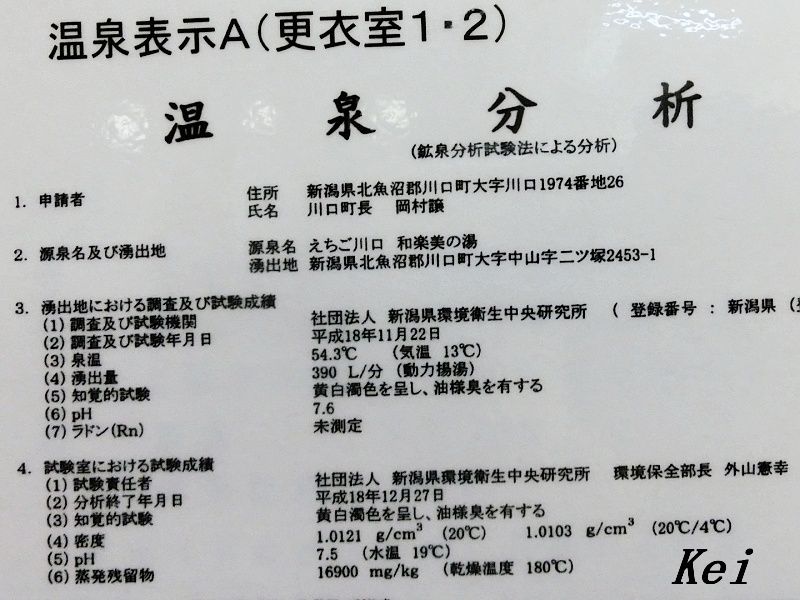 温泉表示A(更衣室1・2)
温泉分析
(鉱泉分析試験法による分析)
1. 申請者 住所 新潟県北魚沼郡川口町大字川口1974番地26
氏名 川口町長 岡村譲
2. 源泉名及び湧出地 源泉名 えちご川口 和楽美の湯
湧出地 新潟県北魚沼郡川口町大字中山字二ツ塚2453-1
3. 湧出地における調査及び試験成績
(1) 調査及び試験機関 社団法人 新潟県環境衛生中央研究所 ( 登録番号 : 新潟県 (
(2) 調査及び試験年月日 平成18年11月22日
(3) 泉温 54.3℃ (気温 13℃)
(4) 湧出量 390 L/分 (動力揚湯)
(5) 知覚的試験 黄白濁色を呈し、油様臭を有する
(6) pH 7.6
(7) ラドン(Rn) 未測定
4. 試験室における試験成績
(1) 試験責任者 社団法人 新潟県環境衛生中央研究所 環境保全部長 外山憲幸
(2) 分析終了年月日 平成18年12月27日
(3) 知覚的試験 黄白濁色を呈し、油様臭を有する
(4) 密度 1.0121 g/cm³ (20℃) 1.0103 g/cm³ (20℃/4℃)
(5) pH 7.5 (水温 19℃)
(6) 蒸発残留物 16900 mg/kg (乾燥温度 180℃)
Kei